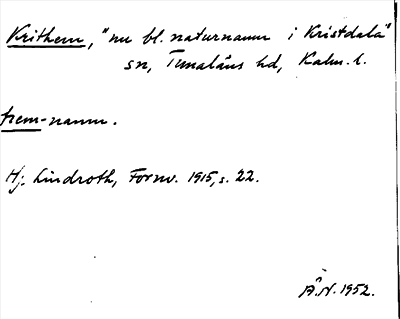 Krithem, "nu bl. naturnamn i Kristdala"
sn, Tunaläns hd, Kalm. l.
hem-namn.
Hj. Lindroth, Fornv. 1915, s. 22.
Å.N. 1952.